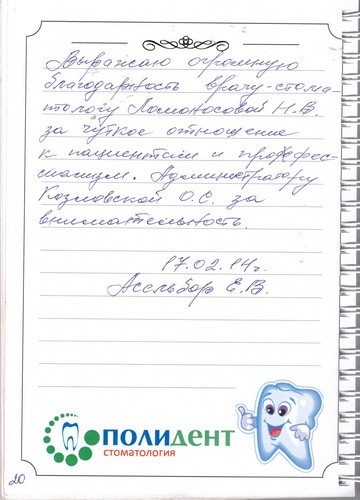 Выражаю огромную
благодарность врачу-стома-
тологу Ломоносовой Н.В.
за чуткое отношение
к пациентам и профес-
сиализм. Администратору
Козловской О.С. за
внимательность.
17.02.14г.
Е.В.
ПОЛИДЕНТ
СТОМАТОЛОГИЯ
20